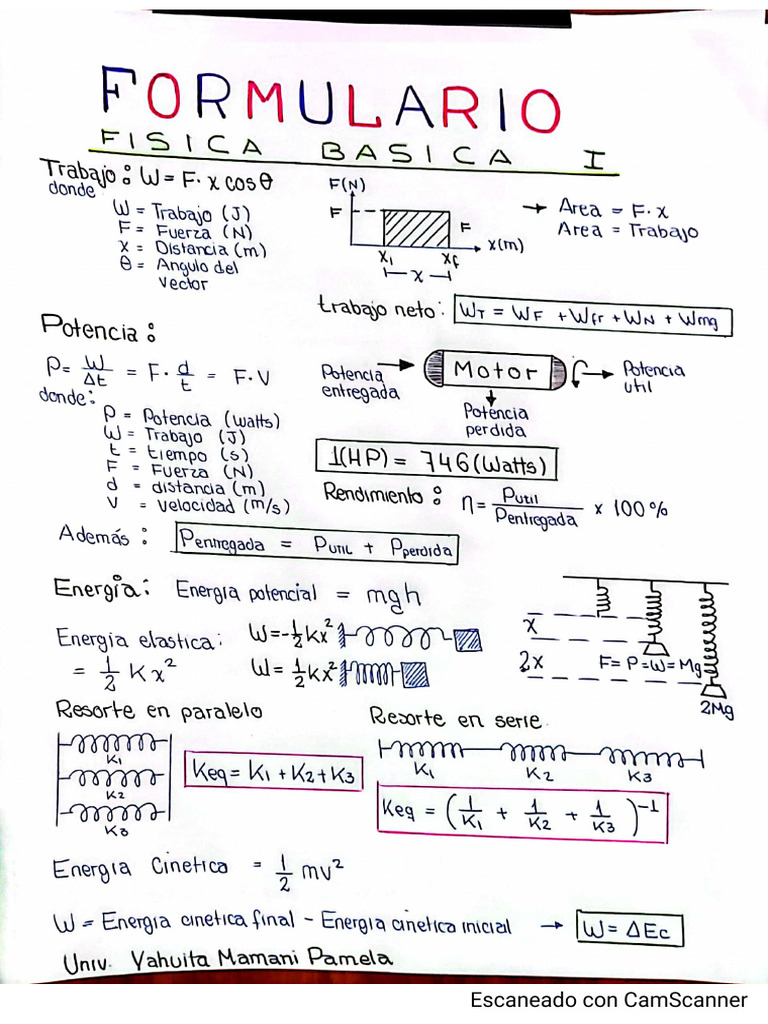 FORMULARIO
FISICA BASICA I
Trabajo: W = F · x cos θ
donde
W = Trabajo (J)
F = Fuerza (N)
X = Distancia (m)
θ = Angulo del
vector
F(N)
F
F
X₁ X_f X(m)
x
→ Area = F · x
Area = Trabajo
trabajo neto: W_T = W_F + W_fr + W_N + W_mg
Potencia:
P = W/Δt = F · d/t = F · V
donde:
P = Potencia (watts)
W = Trabajo (J)
t = tiempo (s)
F = Fuerza (N)
d = distancia (m)
V = velocidad (m/s)
Potencia
entregada
Motor
Potencia
util
Potencia
perdida
1(HP) = 746(Watts)
Rendimiento: η = P_util / P_entregada × 100%
Además: P_entregada = P_UTIL + P_perdida
Energía: Energia potencial = mgh
Energia elastica: W = -½Kx²
= ½ K x² W = ½Kx²
X
2x F = P = W = Mg
2Mg
Resorte en paralelo
K₁
K₂
K₃
Keq = K₁ + K₂ + K₃
Resorte en serie
K₁ K₂ K₃
Keq = (1/K₁ + 1/K₂ + 1/K₃)⁻¹
Energia Cinetica = ½ mv²
W = Energia cinetica final - Energia cinetica inicial → W = ΔEc
Univ. Yahuita Mamani Pamela
Escaneado con CamScanner